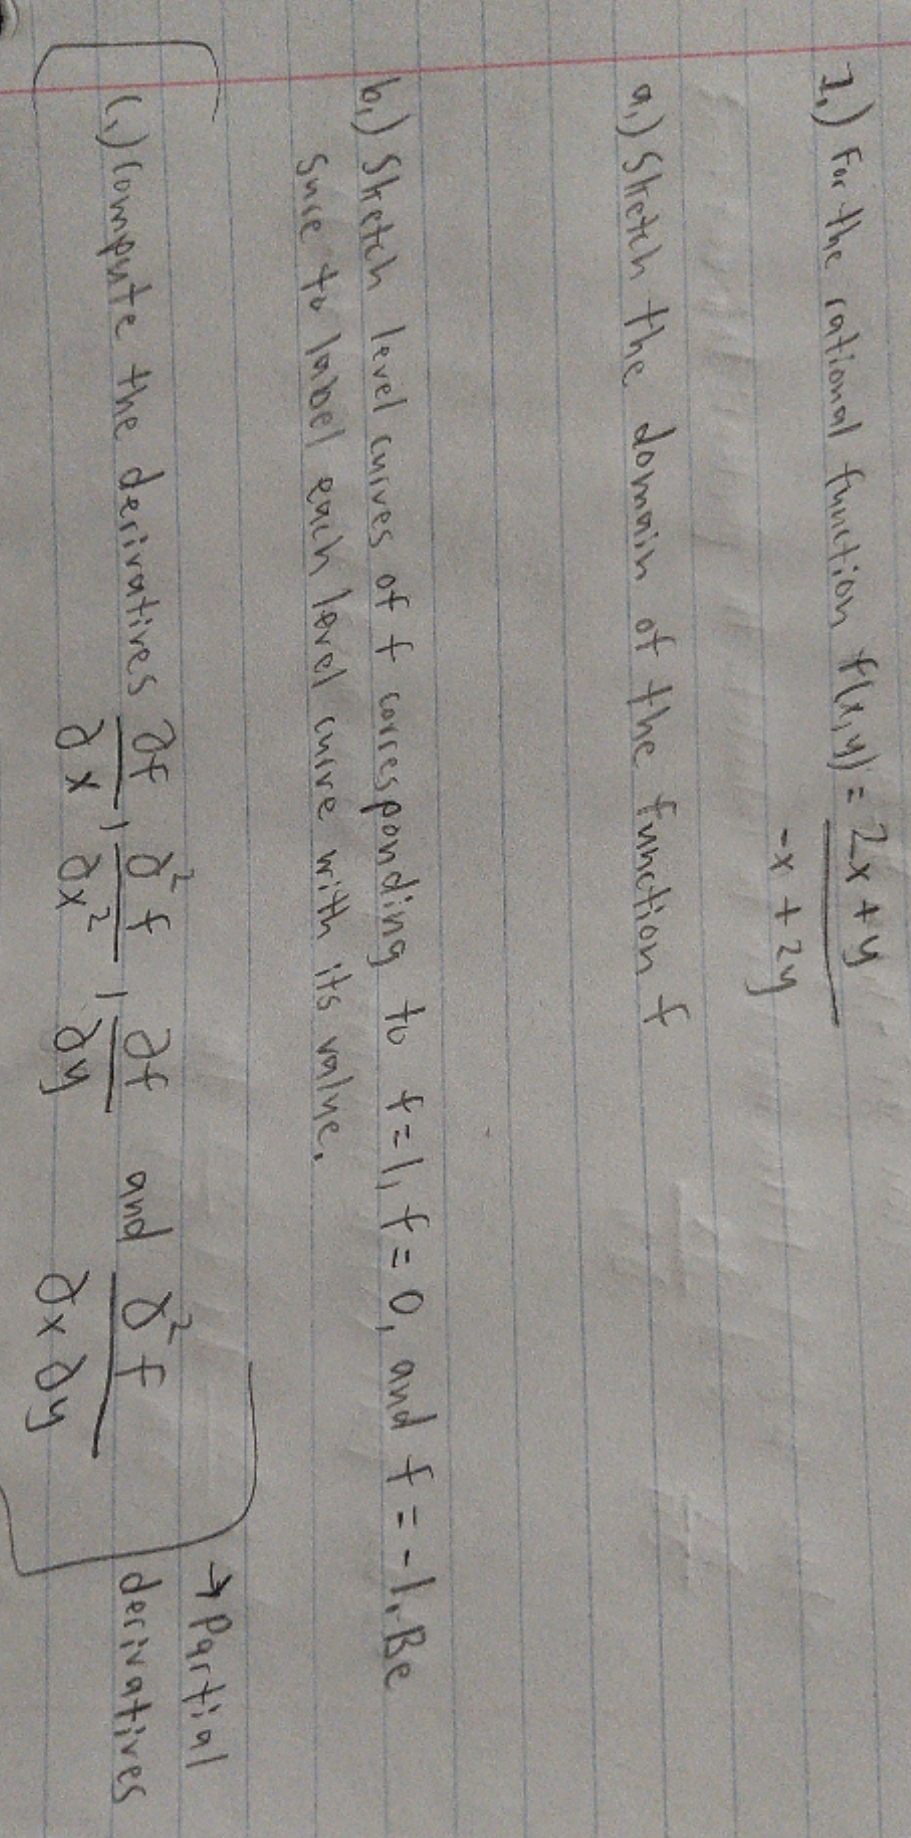 1.) For the rational function f(x,y) = 2x + y / -x + 2y
a.) Sketch the domain of the function f
b.) Sketch level curves of f corresponding to f=1, f=0, and f=-1. Be
sure to label each level curve with its value.
c.) Compute the derivatives ∂f/∂x, ∂²f/∂x², ∂f/∂y and ∂²f/∂x∂y
→ Partial
derivatives